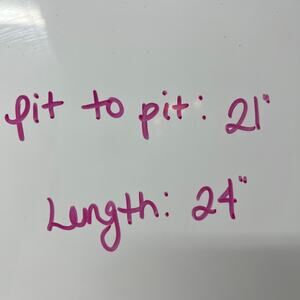 pit to pit: 21"
Length: 24"